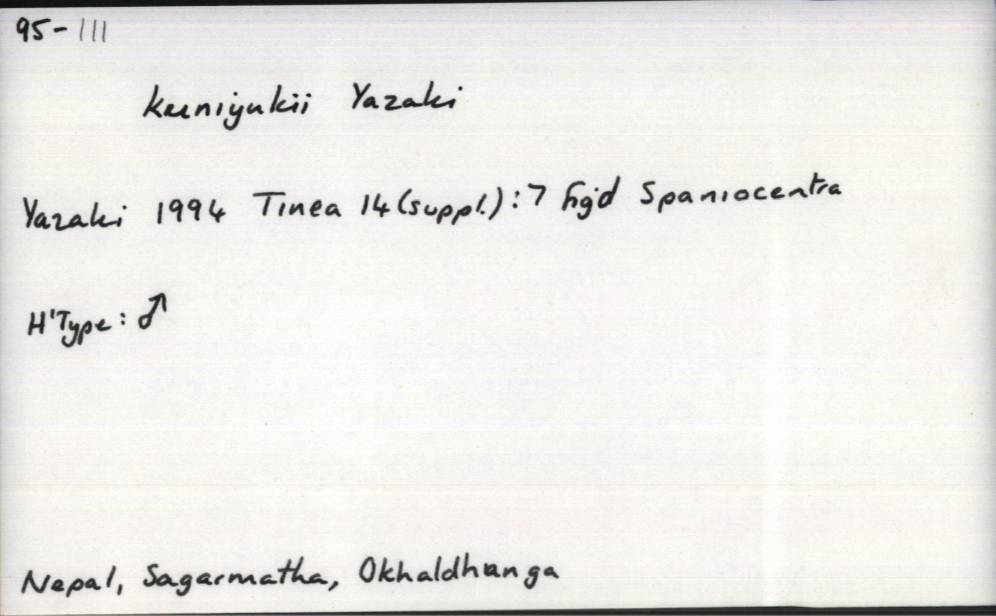 95-111
kuniyukii Yazaki
Yazaki 1994 Tinea 14(suppl.):7 figd Spaniocentra
H'Type: ♂
Nepal, Sagarmatha, Okhaldhunga